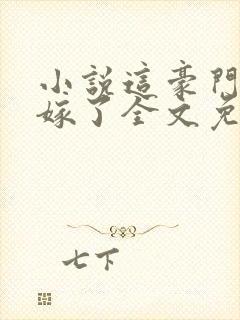 小說這豪門
嫁了全文免
七下